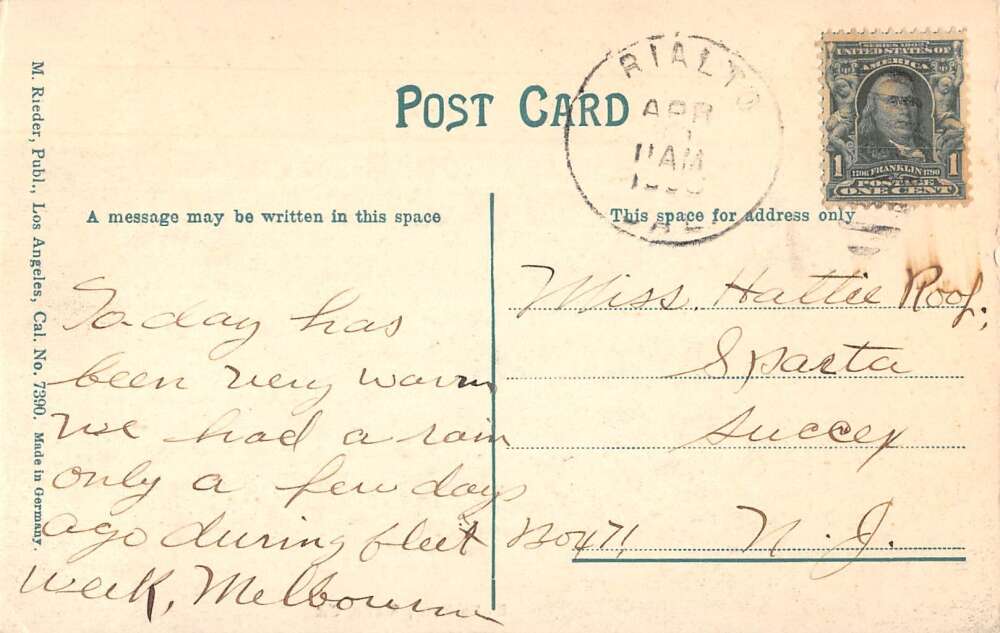 M. Rieder, Publ., Los Angeles, Cal. No. 7390. Made in Germany.
POST CARD
RIALTO
APR
11 AM
CAL
SERIES 1902
UNITED STATES OF
AMERICA
1 1706 FRANKLIN 1790 1
POSTAGE
ONE CENT
A message may be written in this space
This space for address only
To-day has
been very warm
we had a rain
only a few days
ago during fleet
week, Melbourne
Miss. Hattie Roof,
Sparta
Succex
Box 71, N. J.